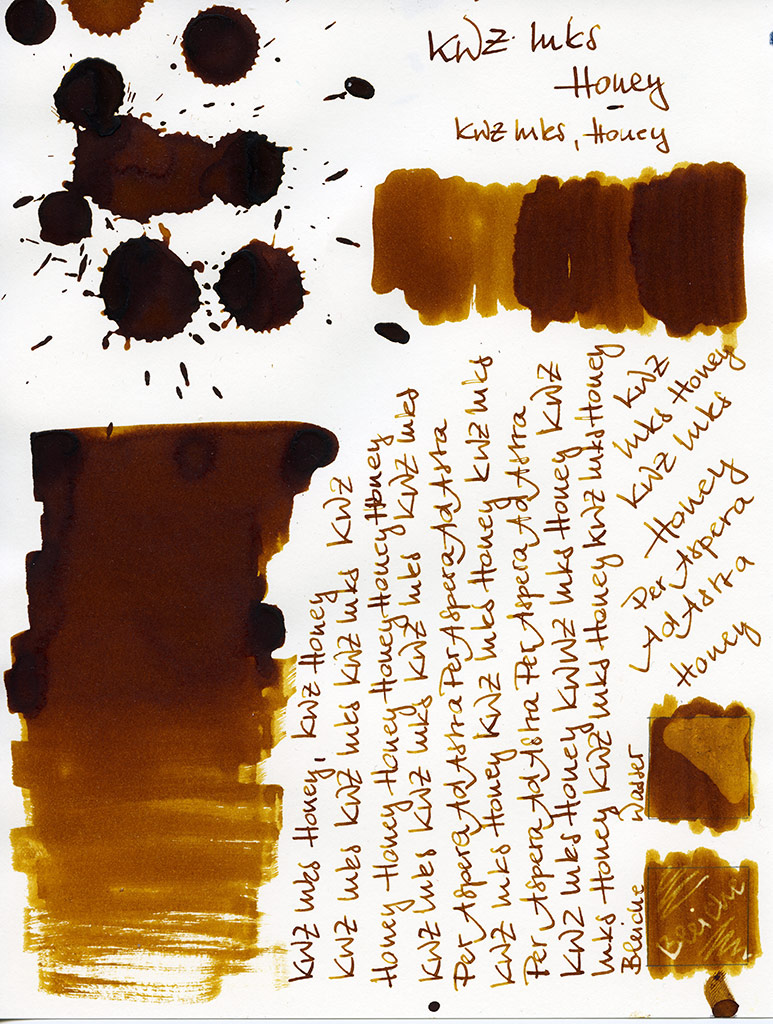 KWZ Inks
Honey
KWZ Inks, Honey
KWZ Inks Honey, KWZ Honey
KWZ Inks KWZ Inks KWZ Inks KWZ
Honey Honey Honey Honey Honey Honey Honey
KWZ Inks KWZ Inks KWZ Inks KWZ Inks KWZ Inks
Per Aspera Ad Astra Per Aspera Ad Astra
KWZ Inks Honey KWZ Inks Honey KWZ Inks
Per Aspera Ad Astra Per Aspera Ad Astra
KWZ Inks Honey KWWZ Inks Honey KWZ
Inks Honey KWZ Inks Honey KWZ Inks Honey
KWZ
Inks Honey
KWZ Inks
Honey
Per Aspera
Ad Astra
Honey
Wasser
Bleiche